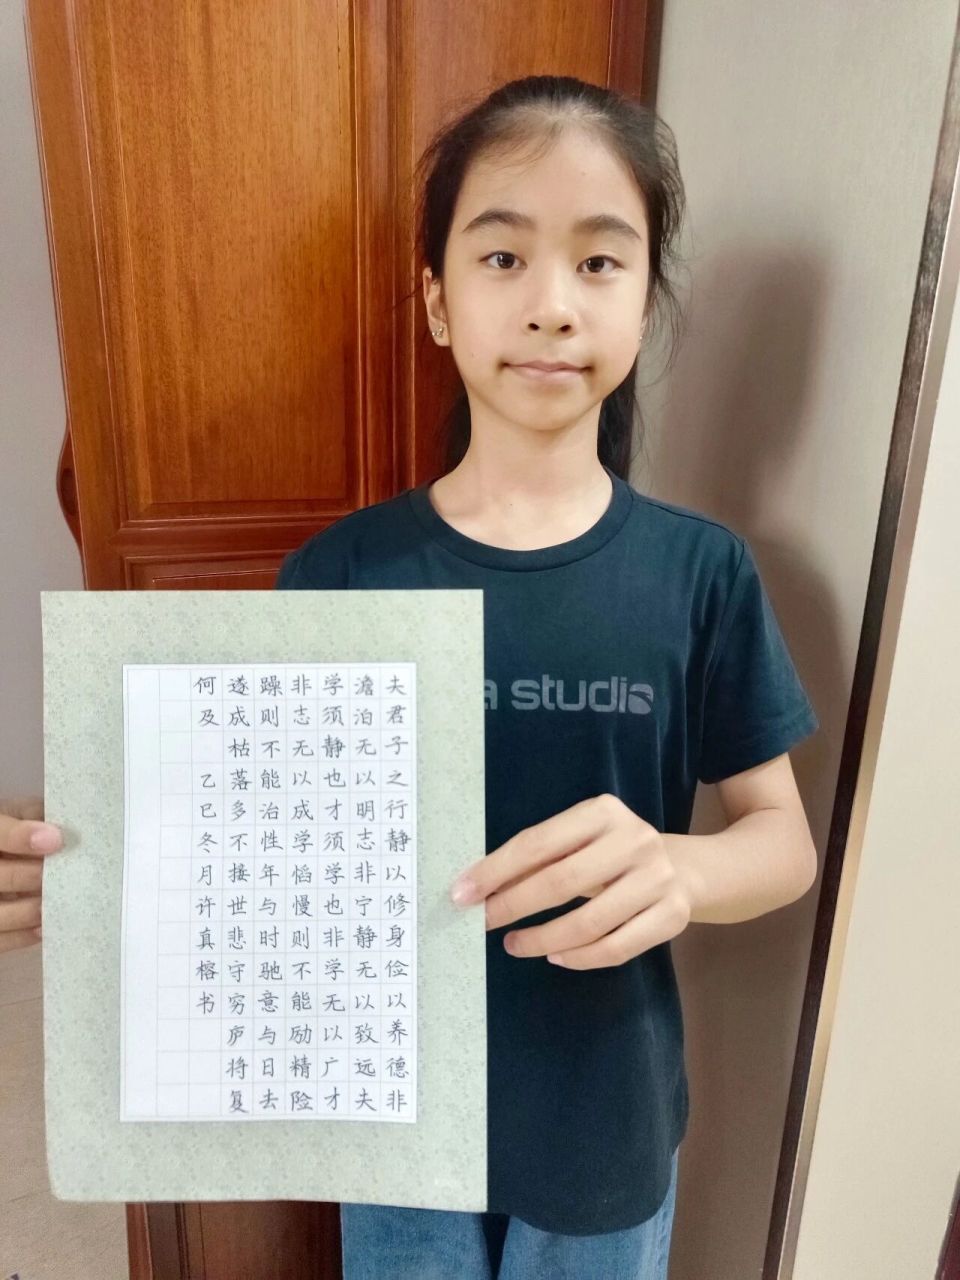 夫君子之行静以修身俭以养德非
澹泊无以明志非宁静无以致远夫
学须静也才须学也非学无以广才
非志无以成学慆慢则不能励精险
躁则不能治性年与时驰意与日去
遂成枯落多不接世悲守穷庐将复
何及 乙巳冬月许真榕书
a studio